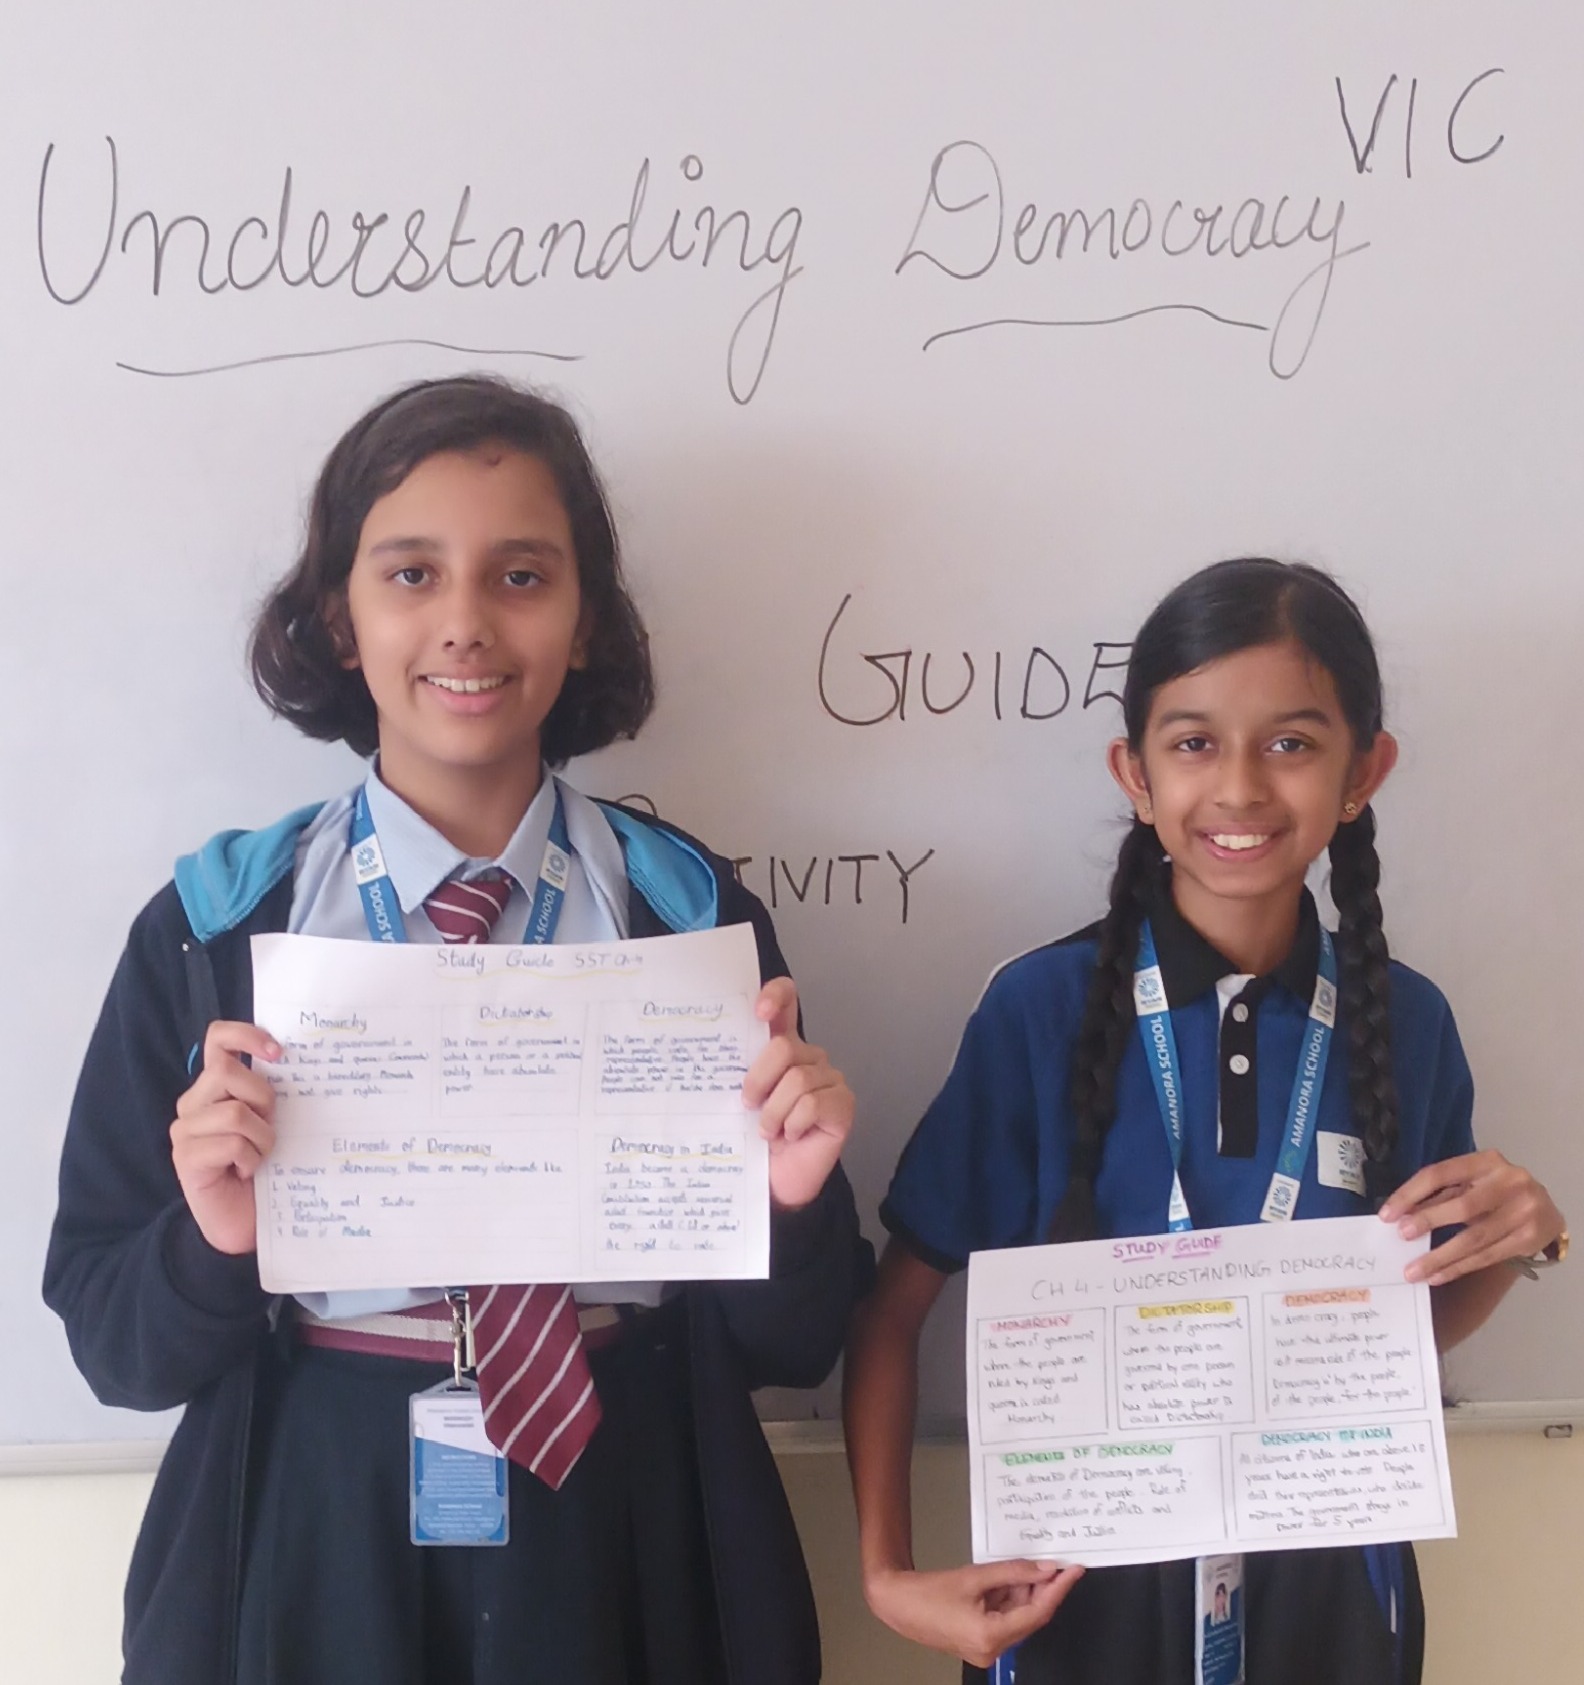 VI C
Understanding Democracy
GUIDE
TIVITY
A SCHOOL
A SCHOOL
AMANORA SCHOOL
AMANORA SCHOOL
Study Guide SST Ch-4
Monarchy
form of government in
Kings and queens
This is hereditary Monarch
not give rights.
Dictatorship
The form of government in
which a person or a political
entity have absolute
power.
Democracy
The form of government in
which people vote for their
representative People have the
absolute power in the government
People can not vote for a
representative if he/she does not
Elements of Democracy
To ensure democracy, there are many elements like
1. Voting
2. Equality and Justice
3. Participation
4. Role of Media
Democracy in India
India became a democracy
in The Indian
Constitution accepts universal
adult franchise which gives
every adult (18 or above)
the right to vote.
STUDY GUIDE
CH 4 - UNDERSTANDING DEMOCRACY
MONARCHY
The form of government
where the people are
ruled by kings and
queens is called
Monarchy
DICTETORSHIP
The form of government
where the people are
governed by one person
or political entity who
has absolute power is
called Dictatorship
DEMOCRACY
In democracy, people
have the ultimate power
of the people
Democracy is 'by the people,
of the people, for the people'
ELEMENTS OF DEMOCRACY
The elements of Democracy are voting,
participation of the people, Role of
media, resolution of conflicts and
Equality and Justice.
DEMOCRACY OF INDIA
All citizens of India who are above 18
years have a right to vote. People
elect their representatives who decide
The government stays in
power for 5 years